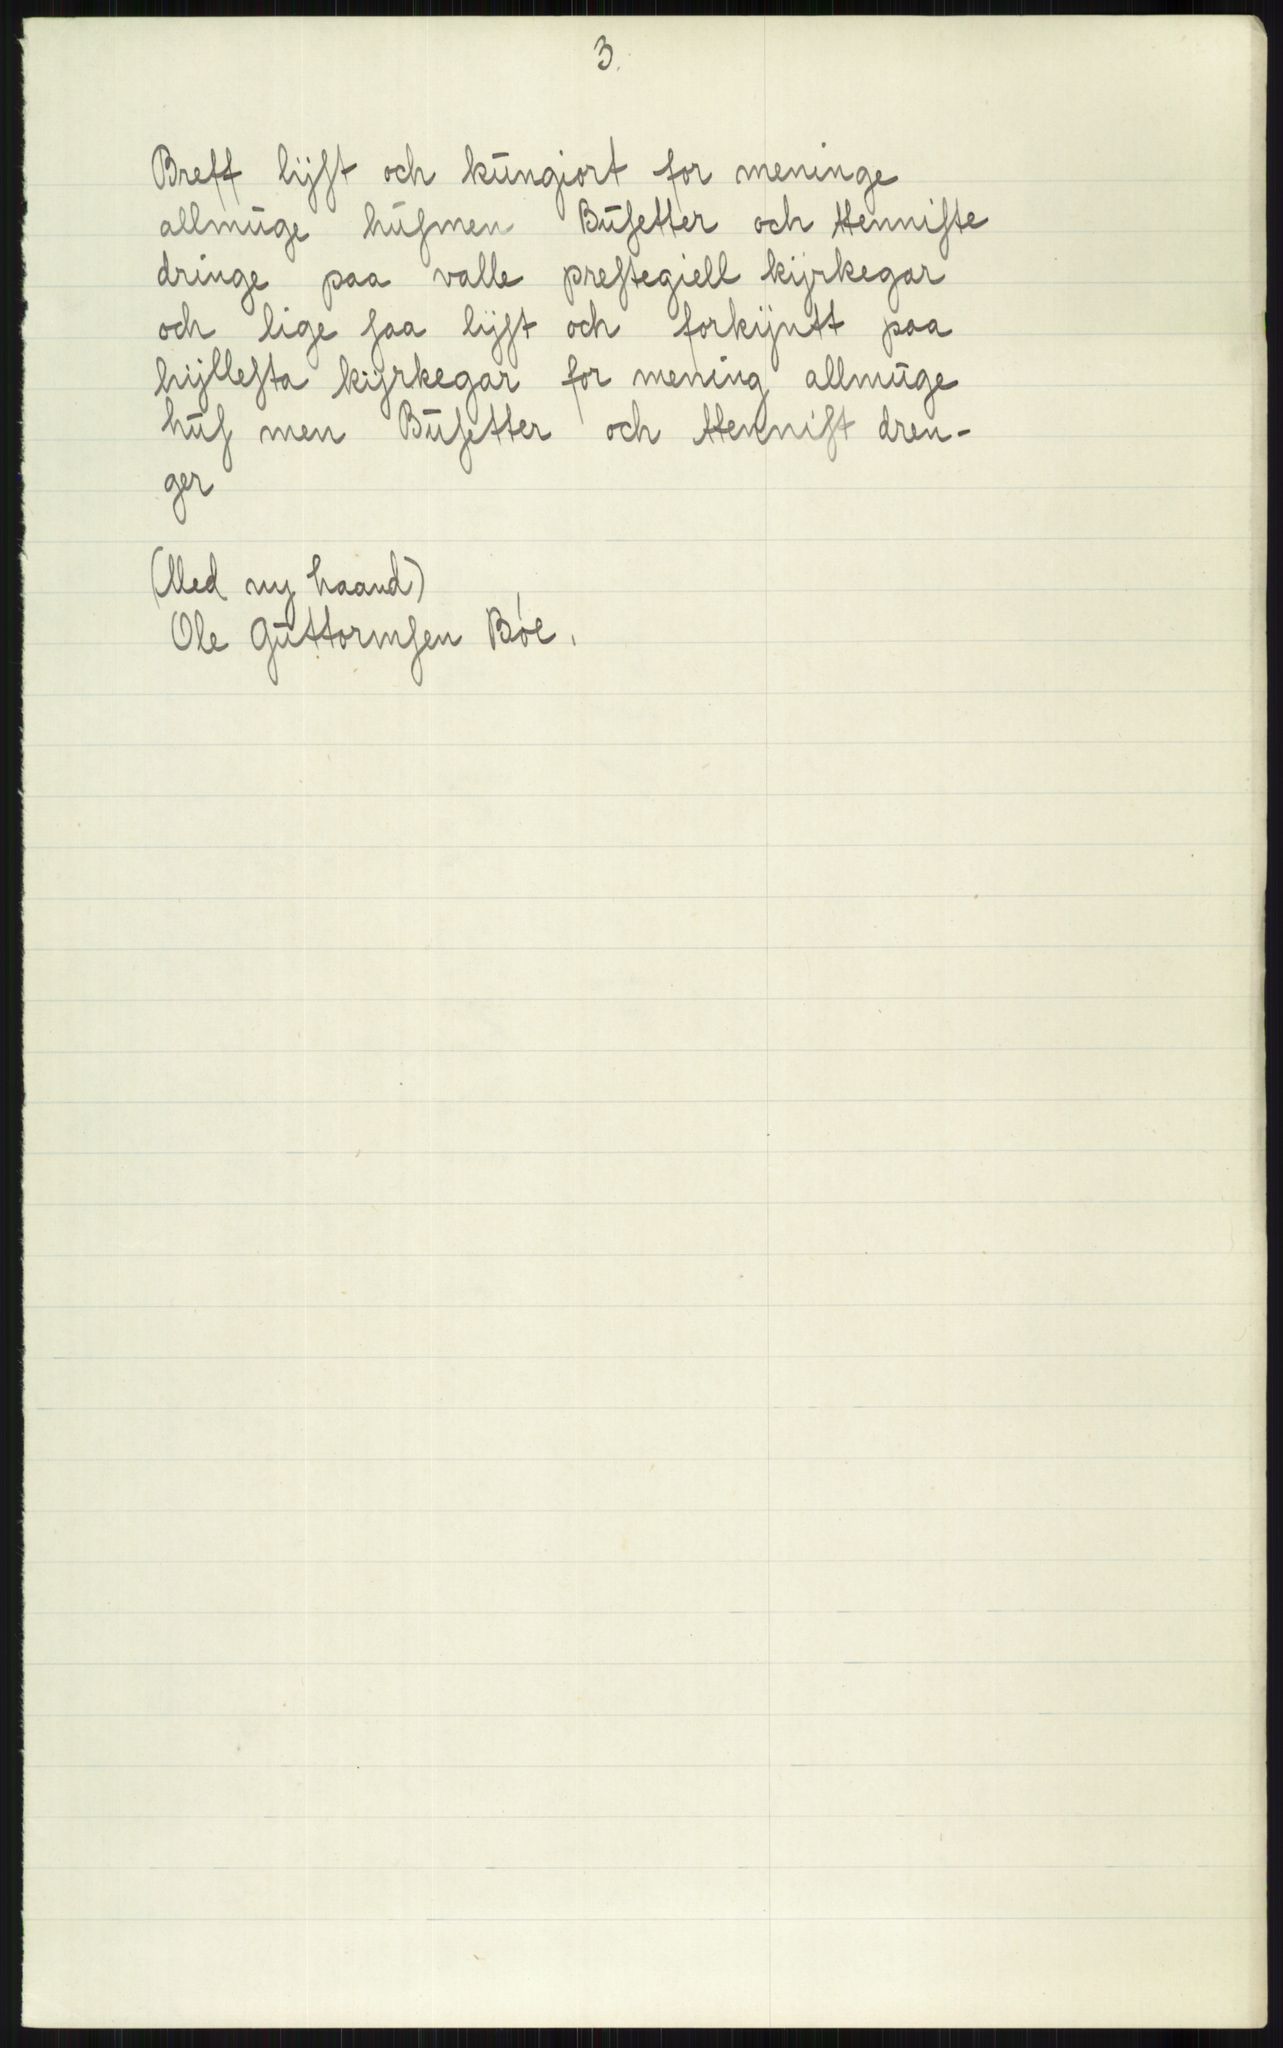 3.
Breff lÿst och kūngiort for meninge
allmūge hūsmen Būsetter och tienniste
dringe paa valle prestegiell kÿrkegar
och lige saa lÿst och forkÿntt paa
hÿllesta kÿrkegar for mening allmūge
hūs men Būsetter och tiennist dren-
ger
(Med ny haand)
Ole Gūttormsen Bóe.